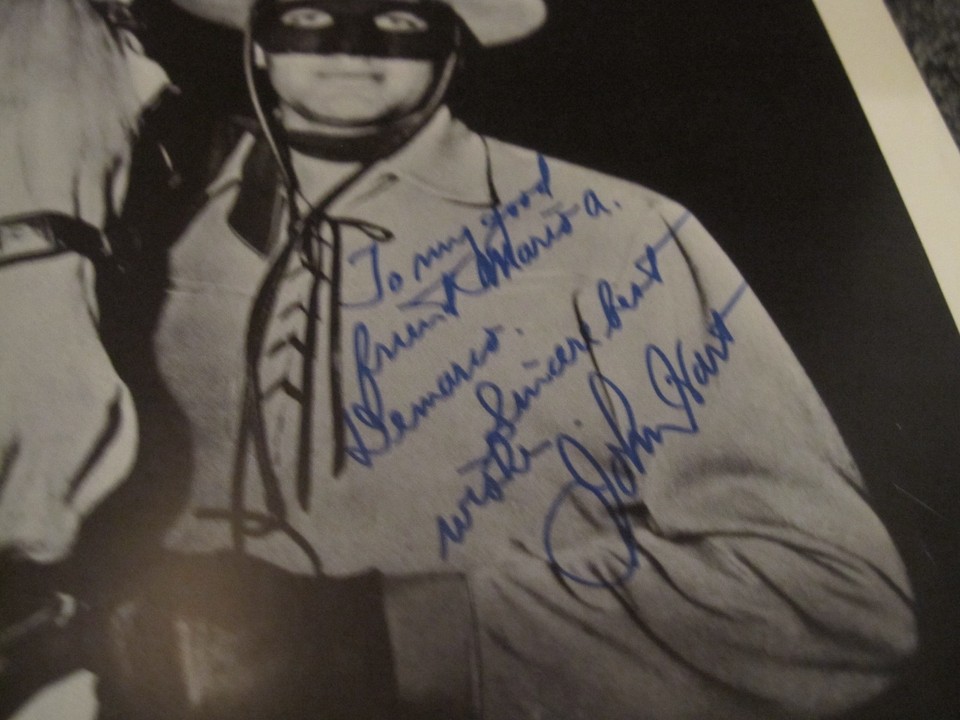 To my good
friend Mario a.
Demarco.
Sincere best
wishe
John Hart